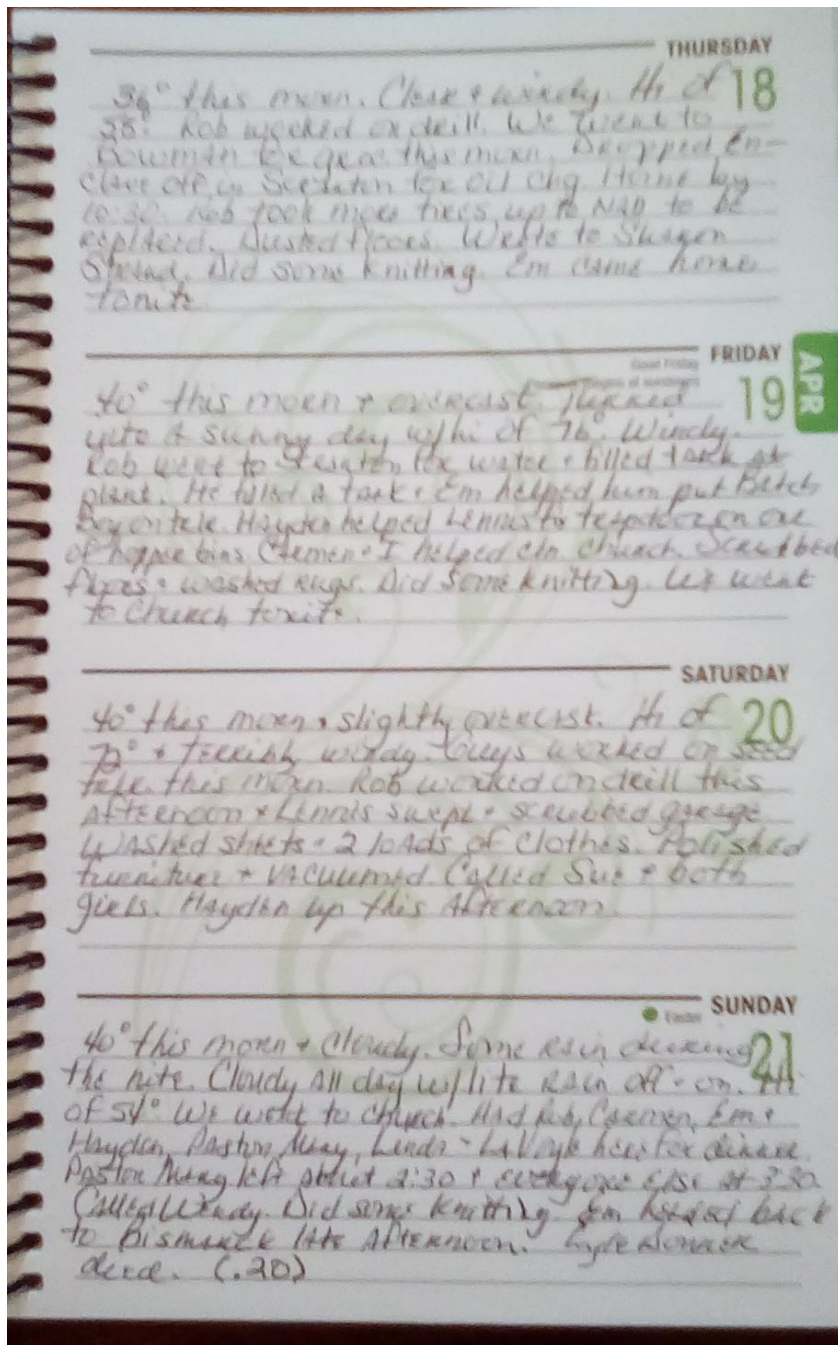 THURSDAY
18
36° this morn. Clear & windy. Hi of
58°. Rob worked on drill. We went to
Bowman for groc. this morn. Dropped En-
clave off in Scranton for oil chg. Home by
10:30. Rob took more tires up to NAD to be
replaced. Dusted floors. Wrote to Sharon
Did some knitting. Em came home
tonite
FRIDAY
Good Friday
19
APR
40° this morn & overcast. Turned
into a sunny day w/hi of 76°. Windy.
Rob went to Scranton for water & filled tank at
plant. He filled a tank & Em helped him put Batch
Boy on trlr. Hayden helped Lennis to on one
of hopper bins. Carmen & I helped cln church. Scrubbed
floors & washed rugs. Did some knitting. We went
to Church tonite.
SATURDAY
20
40° this morn & slightly overcast. Hi of
72° & terribly windy. Guys worked on seed
trlr. this morn. Rob worked on drill this
afternoon & Lennis swept & scrubbed garage
Washed sheets & 2 loads of clothes. Polished
furniture & vacuumed. Called Sue & both
girls. Hayden up this afternoon.
SUNDAY
Easter
21
40° this morn & cloudy. Some rain during
the nite. Cloudy all day w/lite rain off & on. Hi
of 54° We went to church. Had Rob, Carmen, Em &
Hayden, Pastor Mary, Linda & LaVoyle here for dinner.
Pastor Mary left about 2:30 & everyone else at 3:30.
Called Wendy. Did some knitting. Em headed back
to Bismarck late afternoon. Lyle
died. (.20)